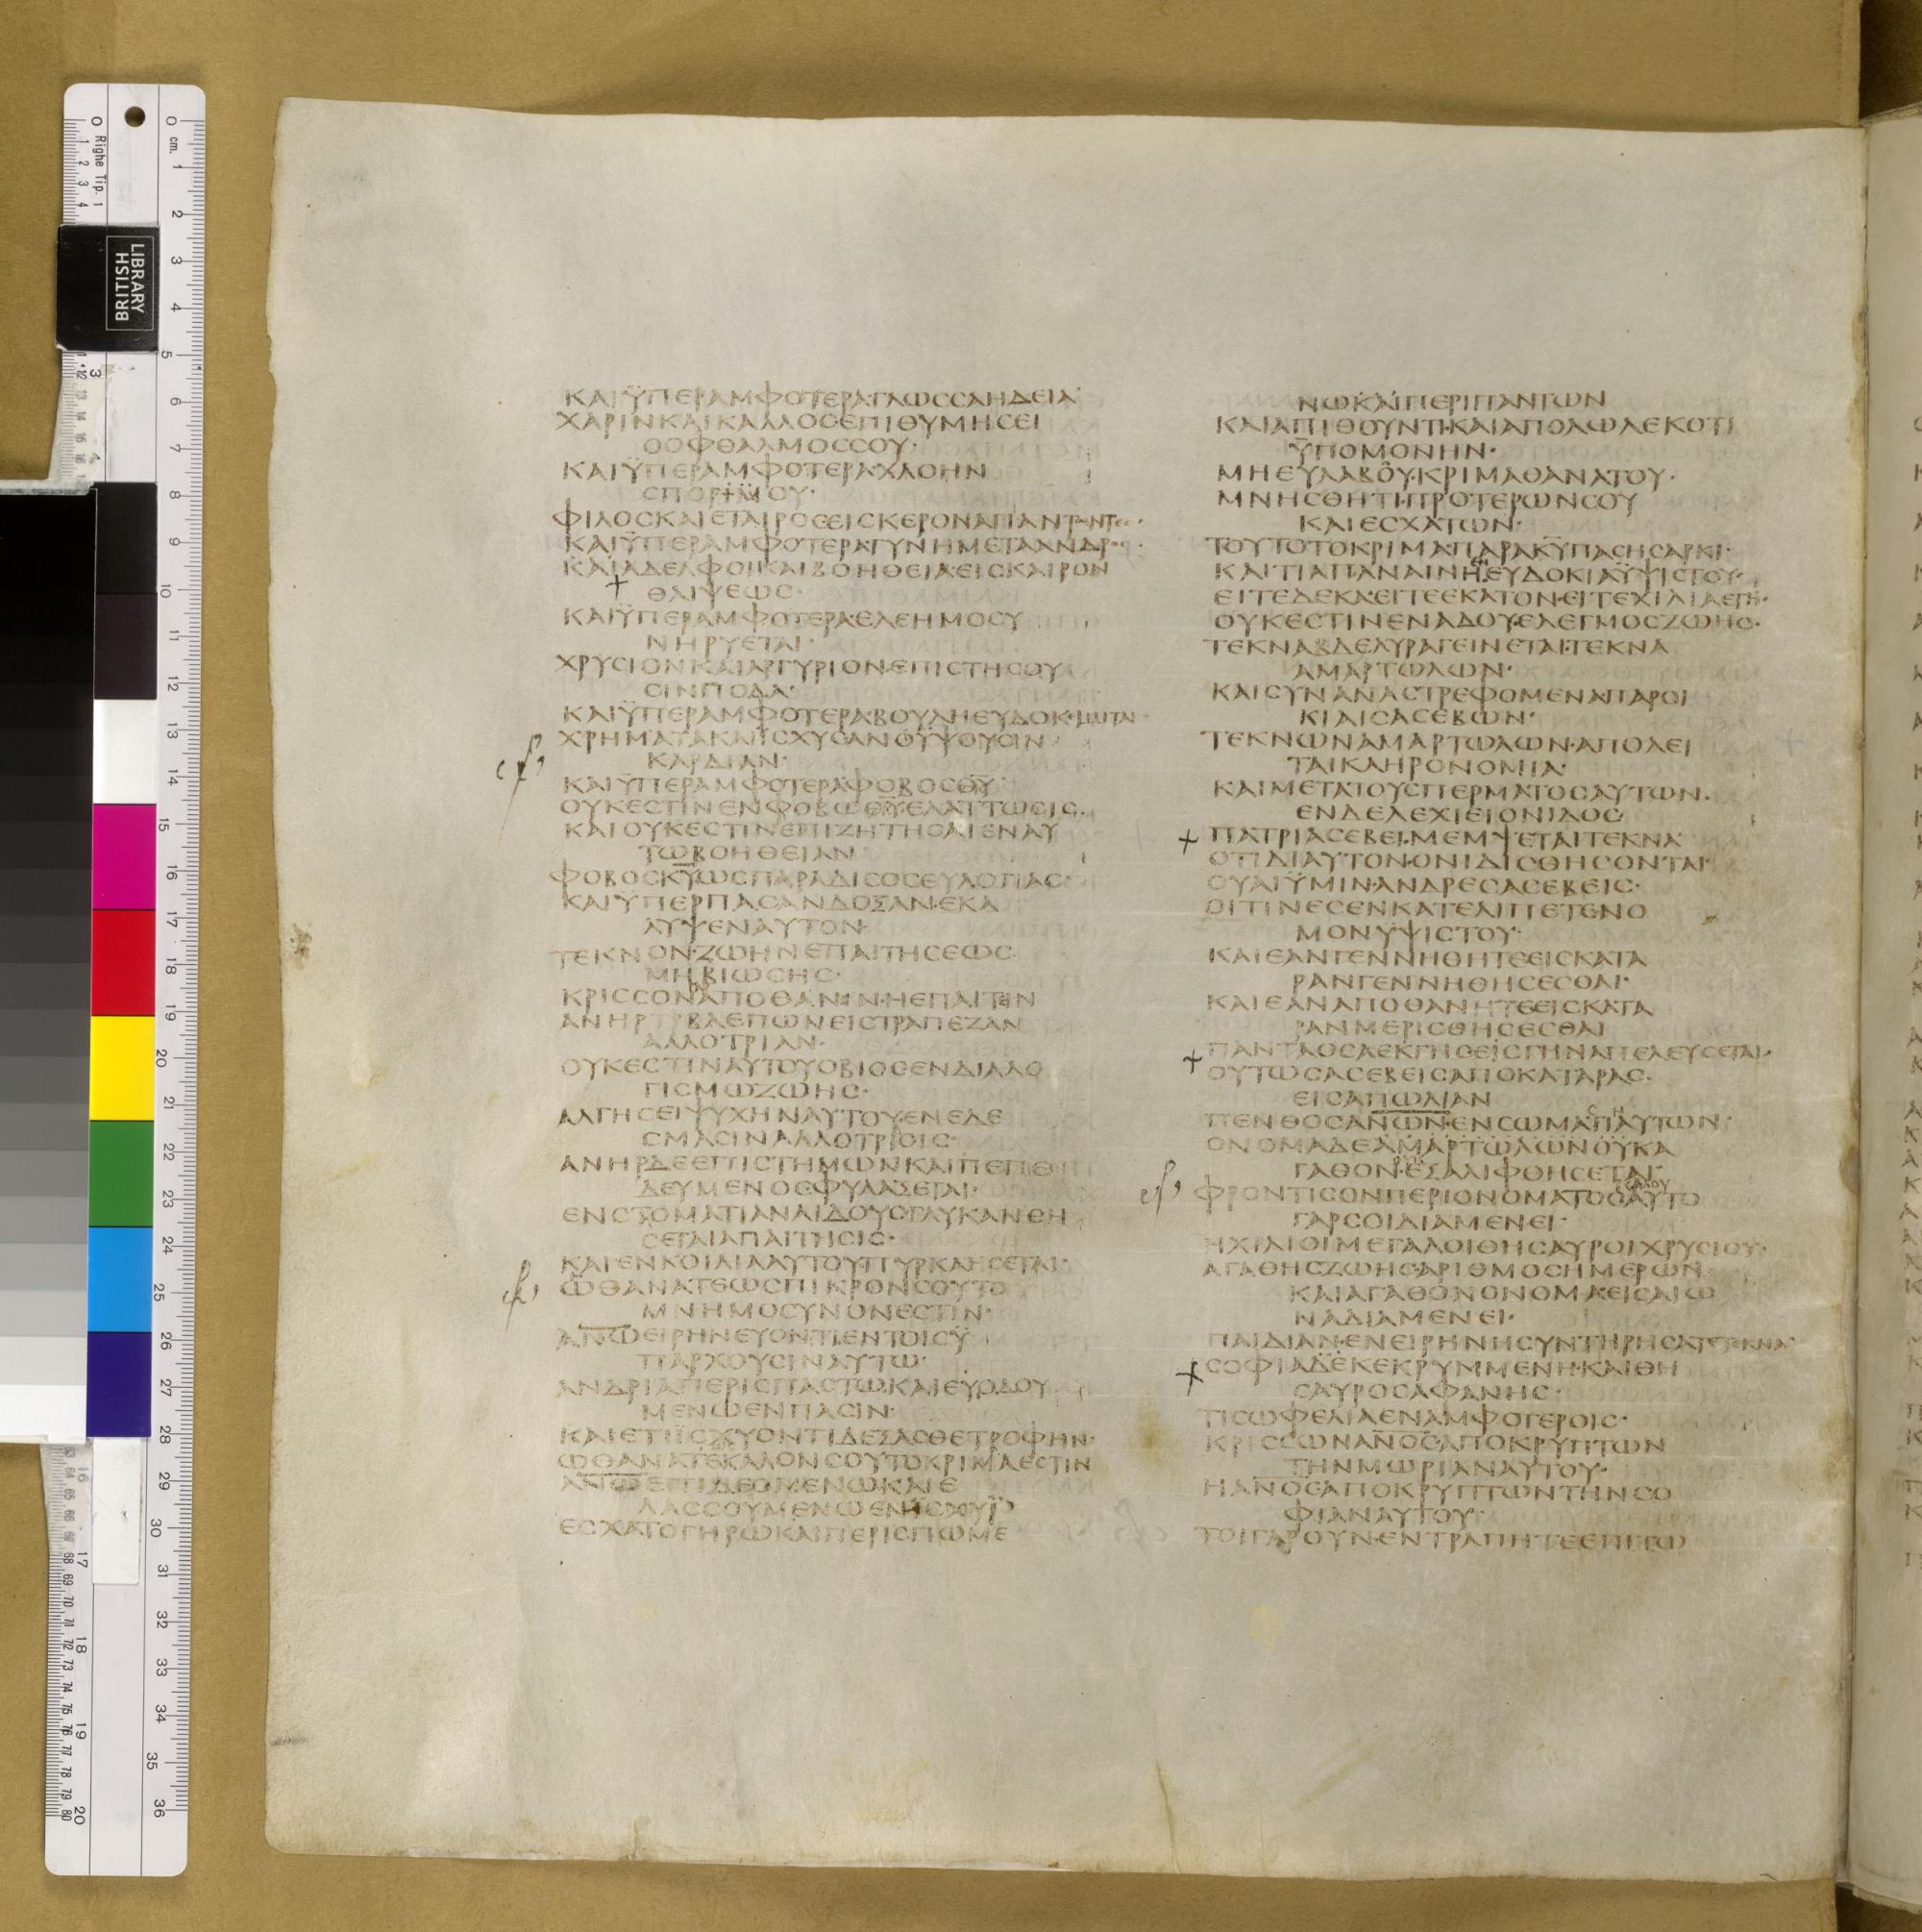 ΚΑΙΫΠΕΡΑΜΦΟΤΕΡΑΓΛΩϹϹΑΗΔΕΙΑ·
ΧΑΡΙΝΚΑΙΚΑΛΛΟϹΕΠΙΘΥΜΗϹΕΙ
ΟΟΦΘΑΛΜΟϹϹΟΥ·
ΚΑΙΫΠΕΡΑΜΦΟΤΕΡΑΧΛΟΗΝ
ϹΠΟΡΙΜΟΥ·
ΦΙΛΟϹΚΑΙΕΤΑΙΡΟϹΕΙϹΚΕΡΟΝΑΠΑΝΤΑΝΤΕϹ·
ΚΑΙΫΠΕΡΑΜΦΟΤΕΡΑΓΥΝΗΜΕΤΑΑΝΔΡΟϹ·
ΚΑΙΑΔΕΛΦΟΙΚΑΙΒΟΗΘΕΙΑΕΙϹΚΑΙΡΟΝ
ΘΛΙΨΕΩϹ·
ΚΑΙΫΠΕΡΑΜΦΟΤΕΡΑΕΛΕΗΜΟϹΥ
ΝΗΡΥΕΤΑΙ·
ΧΡΥϹΙΟΝΚΑΙΑΡΓΥΡΙΟΝΕΠΙϹΤΗϹΟΥ
ϹΙΝΠΟΔΑ·
ΚΑΙΫΠΕΡΑΜΦΟΤΕΡΑΒΟΥΛΗΕΥΔΟΚΙΜΙΤΑΙ
ΧΡΗΜΑΤΑΚΑΙΙϹΧΥϹΑΝΟΫΨΟΥϹΙΝ
ΚΑΡΔΙΑΝ·
ΚΑΙΫΠΕΡΑΜΦΟΤΕΡΑΦΟΒΟϹΘΥ·
ΟΥΚΕϹΤΙΝΕΝΦΟΒΩΘΥΕΛΑΤΤΩϹΙϹ·
ΚΑΙΟΥΚΕϹΤΙΝΕΠΙΖΗΤΗϹΑΙΕΝΑΥ
ΤΩΒΟΗΘΕΙΑΝ
ΦΟΒΟϹΚΥΩϹΠΑΡΑΔΙϹΟϹΕΥΛΟΓΙΑϹ·
ΚΑΙΫΠΕΡΠΑϹΑΝΔΟΞΑΝΕΚΑ
ΛΥΨΕΝΑΥΤΟΝ·
ΤΕΚΝΟΝΖΩΗΝΕΠΑΙΤΗϹΕΩϹ
ΜΗΒΙΩϹΗϹ·
ΚΡΙϹϹΟΝΑΠΟΘΑΝΙΝΗΕΠΑΙΤΙΝ
ΑΝΗΡΒΛΕΠΩΝΕΙϹΤΡΑΠΕΖΑΝ
ΑΛΛΟΤΡΙΑΝ·
ΟΥΚΕϹΤΙΝΑΥΤΟΥΟΒΙΟϹΕΝΔΙΑΛΟ
ΓΙϹΜΩΖΩΗϹ·
ΑΛΓΗϹΕΙΨΥΧΗΝΑΥΤΟΥΕΝΕΔΕ
ϹΜΑϹΙΝΑΛΛΟΤΡΙΟΙϹ·
ΑΝΗΡΔΕΕΠΙϹΤΗΜΩΝΚΑΙΠΕΠΕ
ΔΕΥΜΕΝΟϹΦΥΛΑΞΕΤΑΙ·
ΕΝϹΤΟΜΑΤΙΑΝΑΙΔΟΥϹΓΛΥΚΑΝΘΗ
ϹΕΤΑΙΑΠΑΙΤΗϹΙϹ·
ΚΑΙΕΝΚΟΙΛΙΑΑΥΤΟΥΠΥΡΚΑΗϹΕΤΑΙ·
ΩΘΑΝΑΤΕΩϹΠΙΚΡΟΝϹΟΥΤΟ
ΜΝΗΜΟϹΥΝΟΝΕϹΤΙΝ·
ΑΝΩΕΙΡΗΝΕΥΟΝΤΙΕΝΤΟΙϹΫ
ΠΑΡΧΟΥϹΙΝΑΥΤΩ·
ΑΝΔΡΙΑΠΕΡΙϹΠΑϹΤΩΚΑΙΕΥΟΔΟΥ
ΜΕΝΩΕΝΠΑϹΙΝ·
ΚΑΙΕΤΙΪϹΧΥΟΝΤΙΔΕΞΑϹΘΕΤΡΟΦΗΝ·
ΩΘΑΝΑΤΕΚΑΛΟΝϹΟΥΤΟΚΡΙΜΑΕϹΤΙΝ
ΑΝΩΕΠΙΔΕΟΜΕΝΩΚΑΙΕ
ΛΑϹϹΟΥΜΕΝΩΕΝΙϹΧΥΪ
ΕϹΧΑΤΟΓΗΡΩΚΑΙΠΕΡΙϹΠΩΜΕ
ΝΩΚΑΙΠΕΡΙΠΑΝΤΩΝ
ΚΑΙΑΠΙΘΟΥΝΤΙΚΑΙΑΠΟΛΩΛΕΚΟΤΙ
ΫΠΟΜΟΝΗΝ·
ΜΗΕΥΛΑΒΟΥΚΡΙΜΑΘΑΝΑΤΟΥ·
ΜΝΗϹΘΗΤΙΠΡΟΤΕΡΩΝϹΟΥ
ΚΑΙΕϹΧΑΤΩΝ·
ΤΟΥΤΟΤΟΚΡΙΜΑΠΑΡΑΚΥΠΑϹΗϹΑΡΚΙ·
ΚΑΙΤΙΑΠΑΝΑΙΝΗΕΥΔΟΚΙΑΫΨΙϹΤΟΥ·
ΕΙΤΕΔΕΚΑΕΙΤΕΕΚΑΤΟΝΕΙΤΕΧΙΛΙΑΕΤΗ·
ΟΥΚΕϹΤΙΝΕΝΑΔΟΥΕΛΕΓΜΟϹΖΩΗϹ·
ΤΕΚΝΑΒΔΕΛΥΡΑΓΕΙΝΕΤΑΙΤΕΚΝΑ
ΑΜΑΡΤΩΛΩΝ·
ΚΑΙϹΥΝΑΝΑϹΤΡΕΦΟΜΕΝΑΠΑΡΟΙ
ΚΙΑΙϹΑϹΕΒΩΝ·
ΤΕΚΝΩΝΑΜΑΡΤΩΛΩΝΑΠΟΛΕΙ
ΤΑΙΚΛΗΡΟΝΟΜΙΑ·
ΚΑΙΜΕΤΑΤΟΥϹΠΕΡΜΑΤΟϹΑΥΤΩΝ·
ΕΝΔΕΛΕΧΙΕΙΟΝΙΔΟϹ
ΠΑΤΡΙΑϹΕΒΕΙΜΕΜΨΕΤΑΙΤΕΚΝΑ
ΟΤΙΔΙΑΥΤΟΝΟΝΙΔΙϹΘΗϹΟΝΤΑΙ·
ΟΥΑΙΫΜΙΝΑΝΔΡΕϹΑϹΕΒΕΙϹ·
ΟΙΤΙΝΕϹΕΝΚΑΤΕΛΙΠΕΤΕΝΟ
ΜΟΝΫΨΙϹΤΟΥ·
ΚΑΙΕΑΝΓΕΝΝΗΘΗΤΕΕΙϹΚΑΤΑ
ΡΑΝΓΕΝΝΗΘΗϹΕϹΘΑΙ·
ΚΑΙΕΑΝΑΠΟΘΑΝΗΤΕΕΙϹΚΑΤΑ
ΡΑΝΜΕΡΙϹΘΗϹΕϹΘΑΙ
ΠΑΝΤΑΟϹΑΕΚΓΗϹΕΙϹΓΗΝΑΠΕΛΕΥϹΕΤΑΙ·
ΟΥΤΩϹΑϹΕΒΕΙϹΑΠΟΚΑΤΑΡΑϹ·
ΕΙϹΑΠΩΛΙΑΝ
ΠΕΝΘΟϹΑΝΩΝΕΝϹΩΜΑΠΑΥΤΩΝ·
ΟΝΟΜΑΔΕΑΜΑΡΤΩΛΩΝΟΥΚΑ
ΓΑΘΟΝΕΞΑΛΙΦΘΗϹΕΤΑΙ·
ΦΡΟΝΤΙϹΟΝΠΕΡΙΟΝΟΜΑΤΟϹΑΥΤΟ
ΓΑΡϹΟΙΔΙΑΜΕΝΕΙ·
ΗΧΙΛΙΟΙΜΕΓΑΛΟΙΘΗϹΑΥΡΟΙΧΡΥϹΙΟΥ·
ΑΓΑΘΗϹΖΩΗϹΑΡΙΘΜΟϹΗΜΕΡΩΝ
ΚΑΙΑΓΑΘΟΝΟΝΟΜΑΕΙϹΑΙΩ
ΝΑΔΙΑΜΕΝΕΙ·
ΠΑΙΔΙΑΝΕΝΕΙΡΗΝΗϹΥΝΤΗΡΗϹΑΤΕΤΕΚΝΑ·
ϹΟΦΙΑΔΕΚΕΚΡΥΜΜΕΝΗΚΑΙΘΗ
ϹΑΥΡΟϹΑΦΑΝΗϹ·
ΤΙϹΩΦΕΛΙΑΕΝΑΜΦΟΤΕΡΟΙϹ·
ΚΡΙϹϹΩΝΑΝΟϹΑΠΟΚΡΥΠΤΩΝ
ΤΗΝΜΩΡΙΑΝΑΥΤΟΥ·
ΗΑΝΟϹΑΠΟΚΡΥΠΤΩΝΤΗΝϹΟ
ΦΙΑΝΑΥΤΟΥ·
ΤΟΙΓΑΡΟΥΝΕΝΤΡΑΠΗΤΕΕΠΙΤΩ
BRITISH
LIBRARY
Righe Tip. 1
cm.